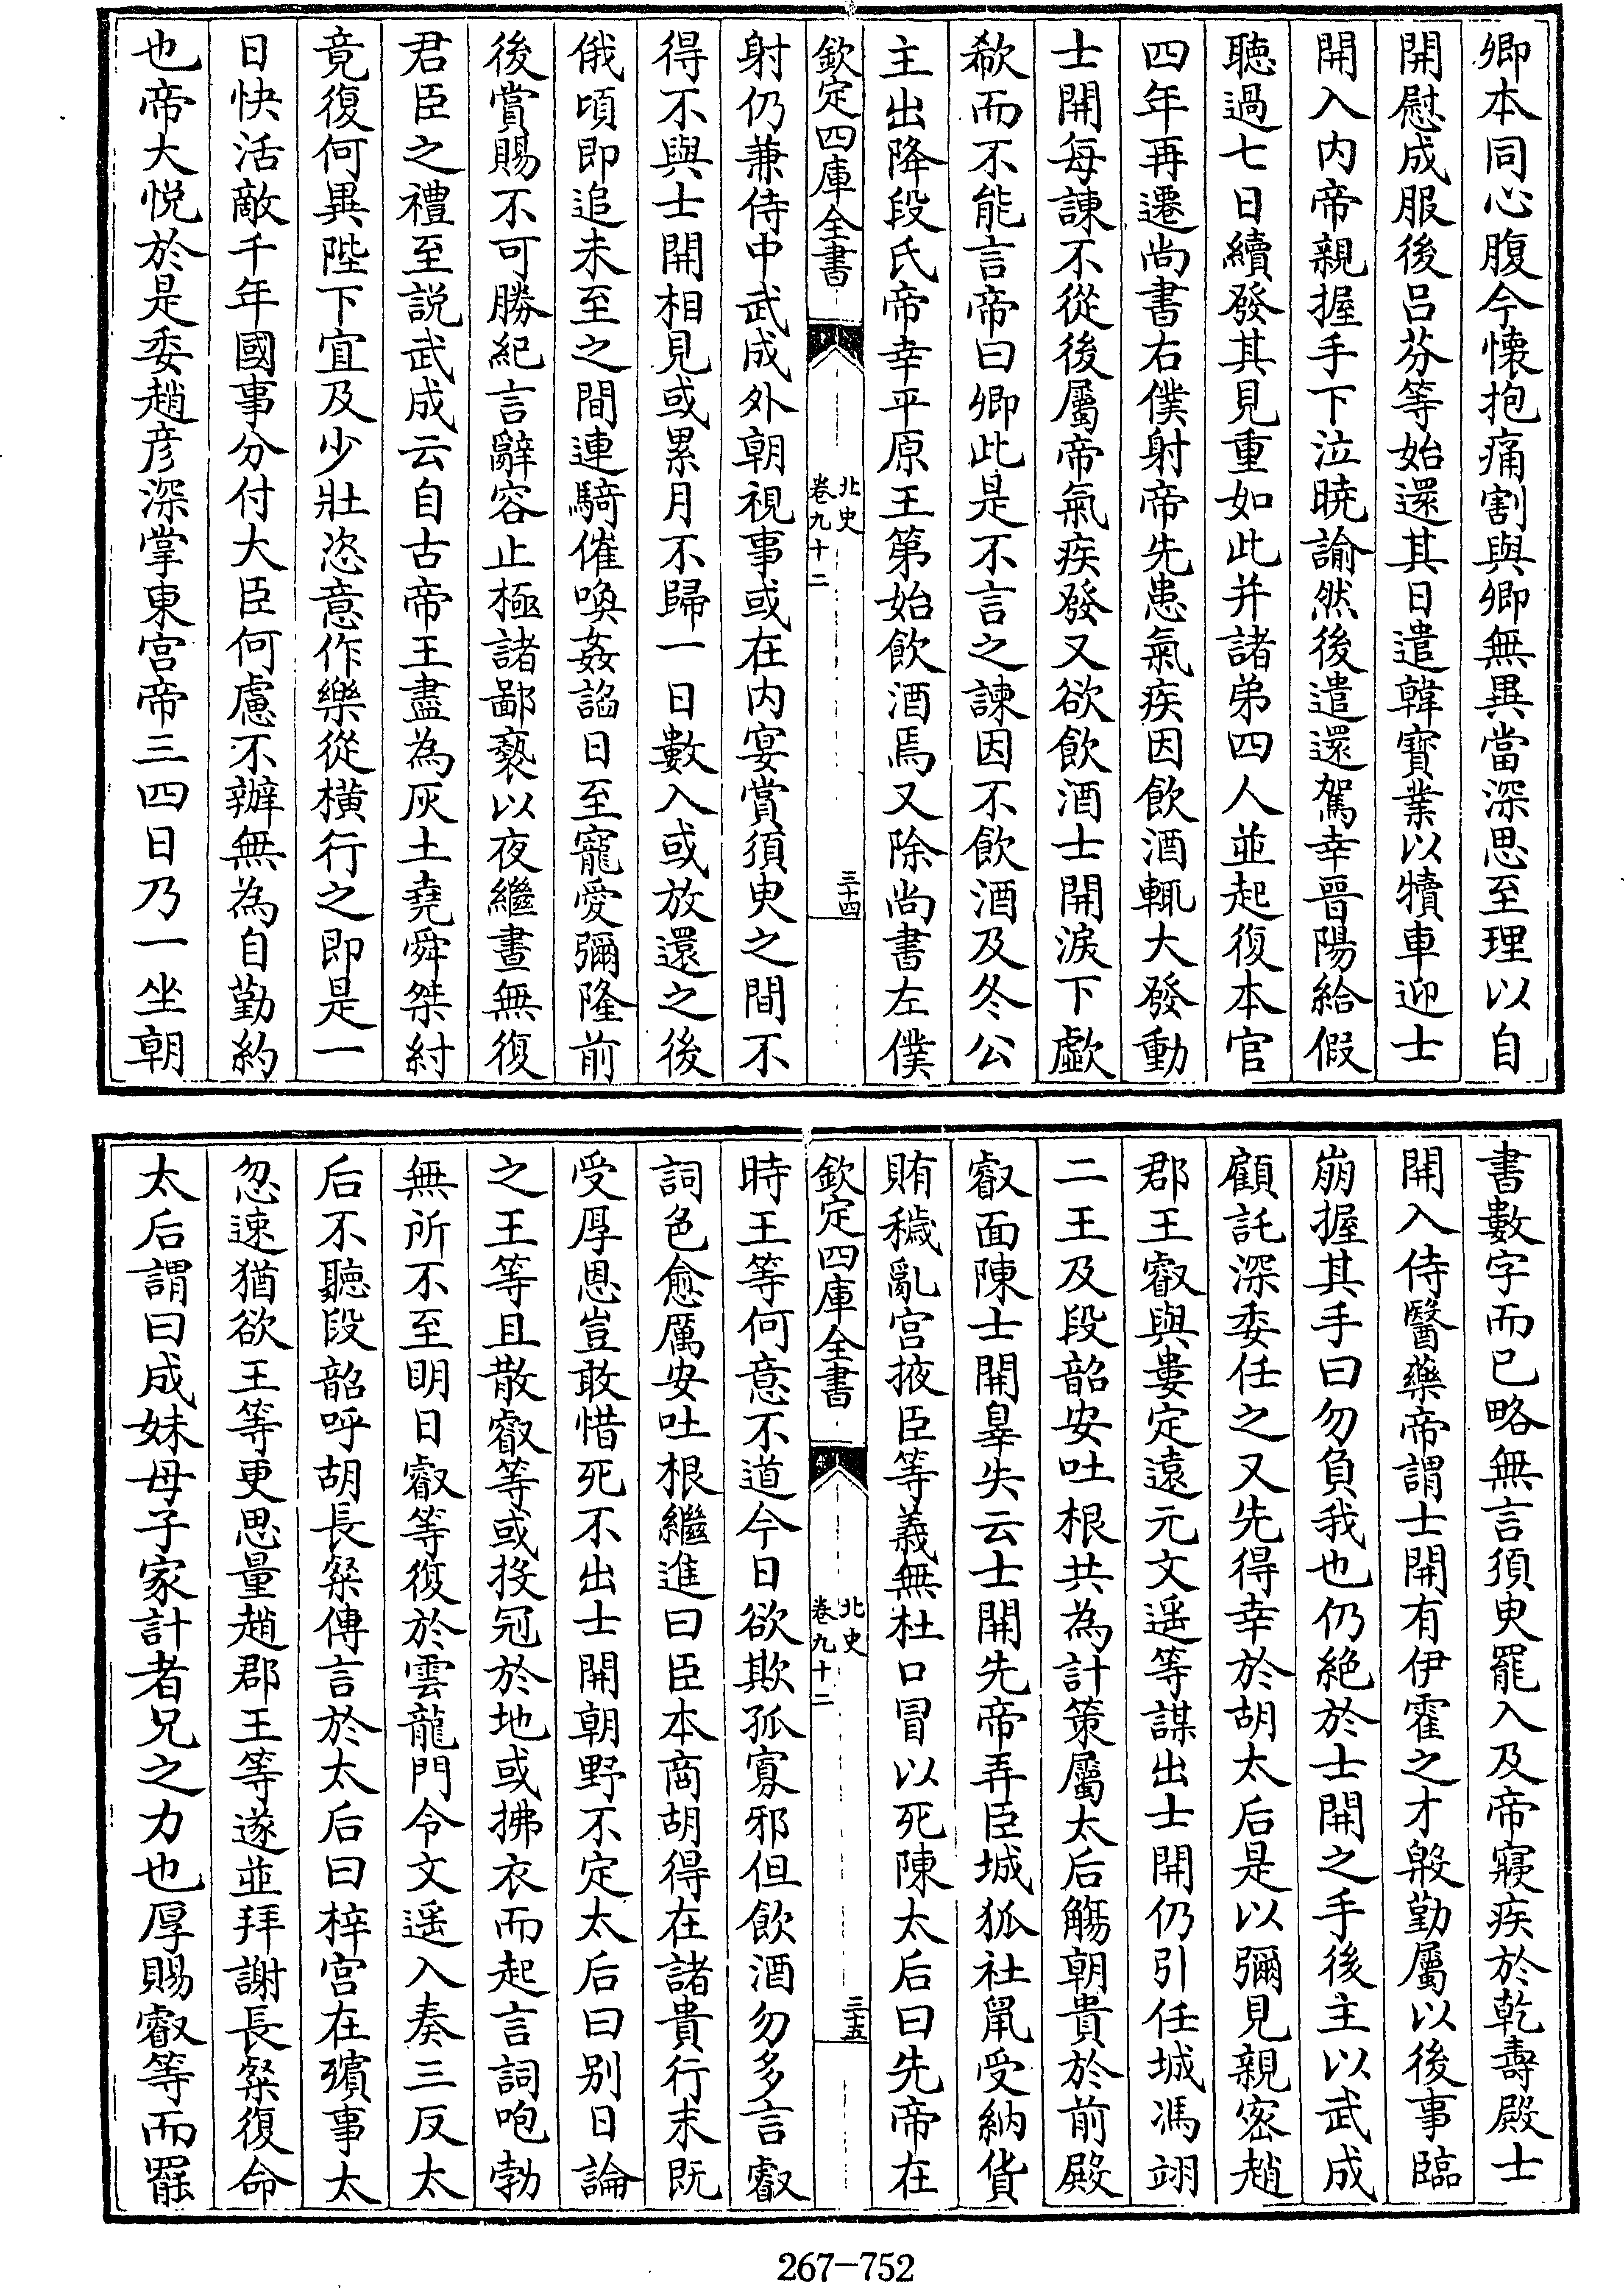 卿本同心腹今懷抱痛割與卿無異當深思至理以自
開慰成服後呂芬等始還其日遣韓寳業以犢車迎士
開入内帝親握手下泣曉諭然後遣還駕幸晉陽給假
聽過七日續發其見重如此并諸弟四人並起復本官
四年再遷尚書右僕射帝先患氣疾因飲酒輒大發動
士開每諫不從後屬帝氣疾發又欲飲酒士開淚下歔
欷而不能言帝曰卿此是不言之諫因不飲酒及冬公
主出降段氏帝幸平原王第始飲酒焉又除尚書左僕
欽定四庫全書
北史
卷九十二
三十四
射仍兼侍中武成外朝視事或在内宴賞須臾之間不
得不與士開相見或累月不歸一日數入或放還之後
俄頃即追未至之間連騎催喚姦謟日至寵愛彌隆前
後賞賜不可勝紀言辭容止極諸鄙褻以夜繼晝無復
君臣之禮至説武成云自古帝王盡為灰土堯舜桀紂
竟復何異陛下宜及少壯恣意作樂從横行之即是一
日快活敵千年國事分付大臣何慮不辦無為自勤約
也帝大悦於是委趙彦深掌東宫帝三四日乃一坐朝
書數字而已略無言須臾罷入及帝寢疾於乾壽殿士
開入侍醫藥帝謂士開有伊霍之才殷勤屬以後事臨
崩握其手曰勿負我也仍絶於士開之手後主以武成
顧託深委任之又先得幸於胡太后是以彌見親密趙
郡王叡與婁定遠元文遥等謀出士開仍引任城馮翊
二王及段韶安吐根共為計策屬太后觴朝貴於前殿
叡面陳士開辠失云士開先帝弄臣城狐社鼠受納貨
賄穢亂宫掖臣等義無杜口冒以死陳太后曰先帝在
欽定四庫全書
北史
卷九十二
三十五
時王等何意不道今日欲欺孤寡邪但飲酒勿多言叡
詞色愈厲安吐根繼進曰臣本商胡得在諸貴行末既
受厚恩豈敢惜死不出士開朝野不定太后曰别日論
之王等且散叡等或投冠於地或拂衣而起言詞咆勃
無所不至明日叡等復於雲龍門令文遥入奏三反太
后不聽段韶呼胡長粲傳言於太后曰梓宫在殯事太
忽速猶欲王等更思量趙郡王等遂並拜謝長粲復命
太后謂曰成妹母子家計者兄之力也厚賜叡等而罷
267-752